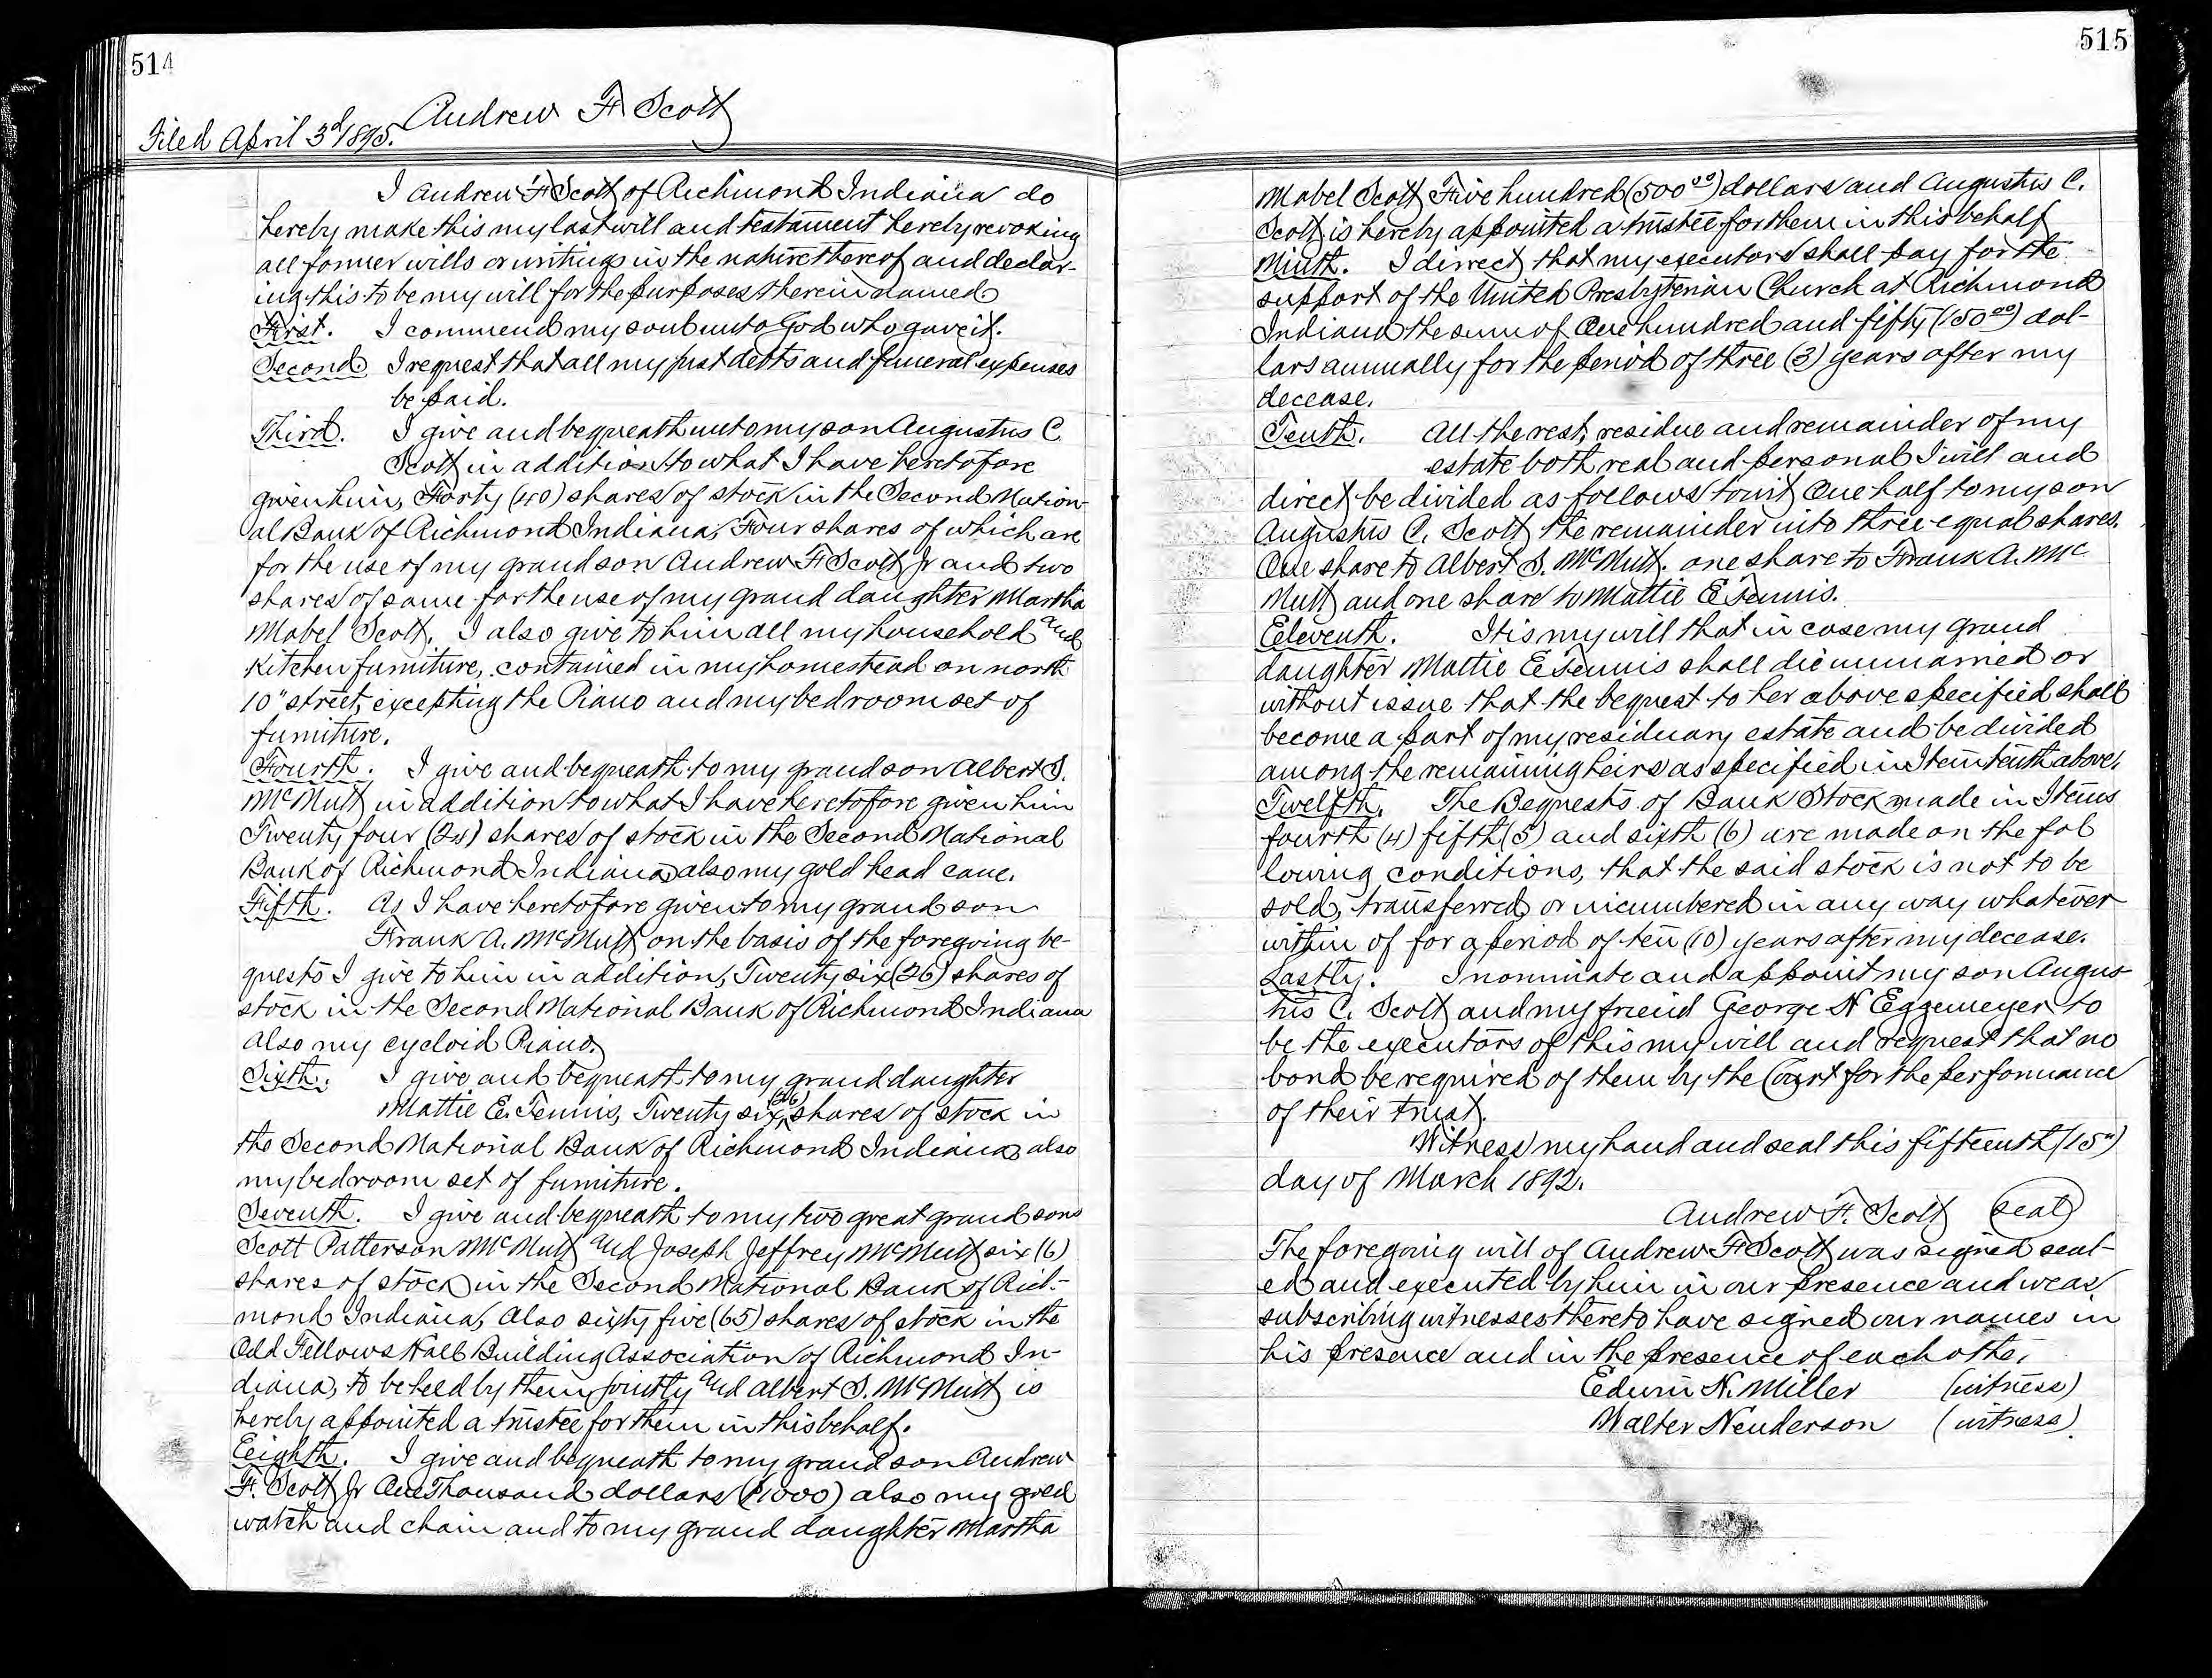 514
Andrew F. Scott
Filed April 3d 1895.
I Andrew F. Scott of Richmond Indiana do
hereby make this my last will and testament hereby revoking
all former wills or writings in the nature thereof and declar-
ing this to be my will for the purposes therein named
First. I commend my soul unto God who gave it.
Second I request that all my just debts and funeral expenses
be paid.
Third. I give and bequeath unto my son Augustus C.
Scott in addition to what I have heretofore
given him, Forty (40) shares of stock in the Second Nation-
al Bank of Richmond Indiana, Four shares of which are
for the use of my grand son Andrew F. Scott Jr and two
shares of same for the use of my grand daughter Martha
Mabel Scott. I also give to him all my household and
Kitchen furniture, contained in my homestead on north
10" street, excepting the Piano and my bedroom set of
furniture.
Fourth. I give and bequeath to my grand son Albert S.
McNutt in addition to what I have heretofore given him
Twenty four (24) shares of stock in the Second National
Bank of Richmond Indiana, also my gold head cane.
Fifth. As I have heretofore given to my grand son
Frank A. McNutt on the basis of the foregoing be-
quests I give to him in addition, Twenty six (26) shares of
stock in the Second National Bank of Richmond Indiana
also my cycloid Piano.
Sixth. I give and bequeath to my grand daughter
Mattie E. Tennis, Twenty six (26) shares of stock in
the Second National Bank of Richmond Indiana, also
my bedroom set of furniture.
Seventh. I give and bequeath to my two great grand sons
Scott Patterson McNutt and Joseph Jeffrey McNutt six (6)
shares of stock in the Second National Bank of Rich-
mond Indiana, Also sixty five (65) shares of stock in the
Odd Fellows Hall Building Association of Richmond In-
diana, to be held by them jointly and Albert S. McNutt is
hereby appointed a trustee for them in this behalf.
Eeighth. I give and bequeath to my grand son Andrew
F. Scott Jr One Thousand dollars ($1000) also my gold
watch and chain and to my grand daughter Martha
515
Mabel Scott Five hundred (500.00) dollars and Augustus C.
Scott is hereby appointed a trustee for them in this behalf
Ninth. I direct that my executors shall pay for the
support of the United Presbyterian Church at Richmond
Indiana the sum of One hundred and fifty (150.00) dol-
lars annually for the period of three (3) years after my
decease.
Tenth. All the rest, residue and remainder of my
estate both real and personal I will and
direct be divided as follows towit One half to my son
Augustus C. Scott the remainder into three equal shares.
One share to Albert S. McNutt. one share to Frank A. Mc
Nutt and one share to Mattie E Tennis.
Eeleventh. It is my will that in case my grand
daughter Mattie E Tennis shall die unmarried or
without issue that the bequest to her above specified shall
become a part of my residuary estate and be divided
among the remaining heirs as specified in Item tenth above.
Twelfth. The Bequests of Bank Stock made in Items
fourth (4) fifth (5) and sixth (6) are made on the fol
lowing conditions, that the said stock is not to be
sold, transferred, or incumbered in any way whatever
within of for a period of ten (10) years after my decease.
Lastly. I nominate and appoint my son Augus-
tus C. Scott and my friend George H Eggemeyer to
be the executors of this my will and request that no
bond be required of them by the Court for the performance
of their trust.
Witness my hand and seal this fifteenth (15")
day of March 1892.
Andrew F. Scott (seal)
The foregoing will of Andrew F. Scott was signed seal-
ed and executed by him in our presence and we as
subscribing witnesses thereto have signed our names in
his presence and in the presence of each other.
Edwin H. Miller (witness)
Walter Henderson (witness).